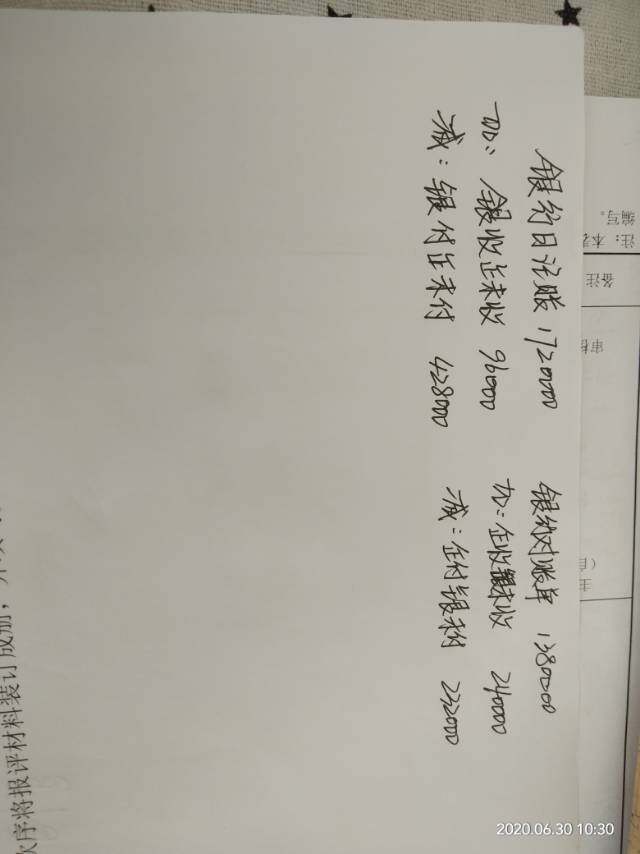 银行日记账 1720000 银行对账单 1380000
加: 银收正未收 96000 加: 企收银未收 240000
减: 银付正未付 428000 减: 企付银未付 232000
注: 本表
编写。
备注
审核
主
(自
次序将报评材料装订成册,
2020.06.30 10:30